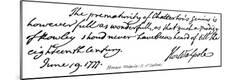 The prematurity of Chatterton's genius is
however full as wonderfull, as that such a prodigy
of Rowley should never have been heard of till the
eighteenth century.
June 19. 1777. Hor Walpole
Horace Walpole